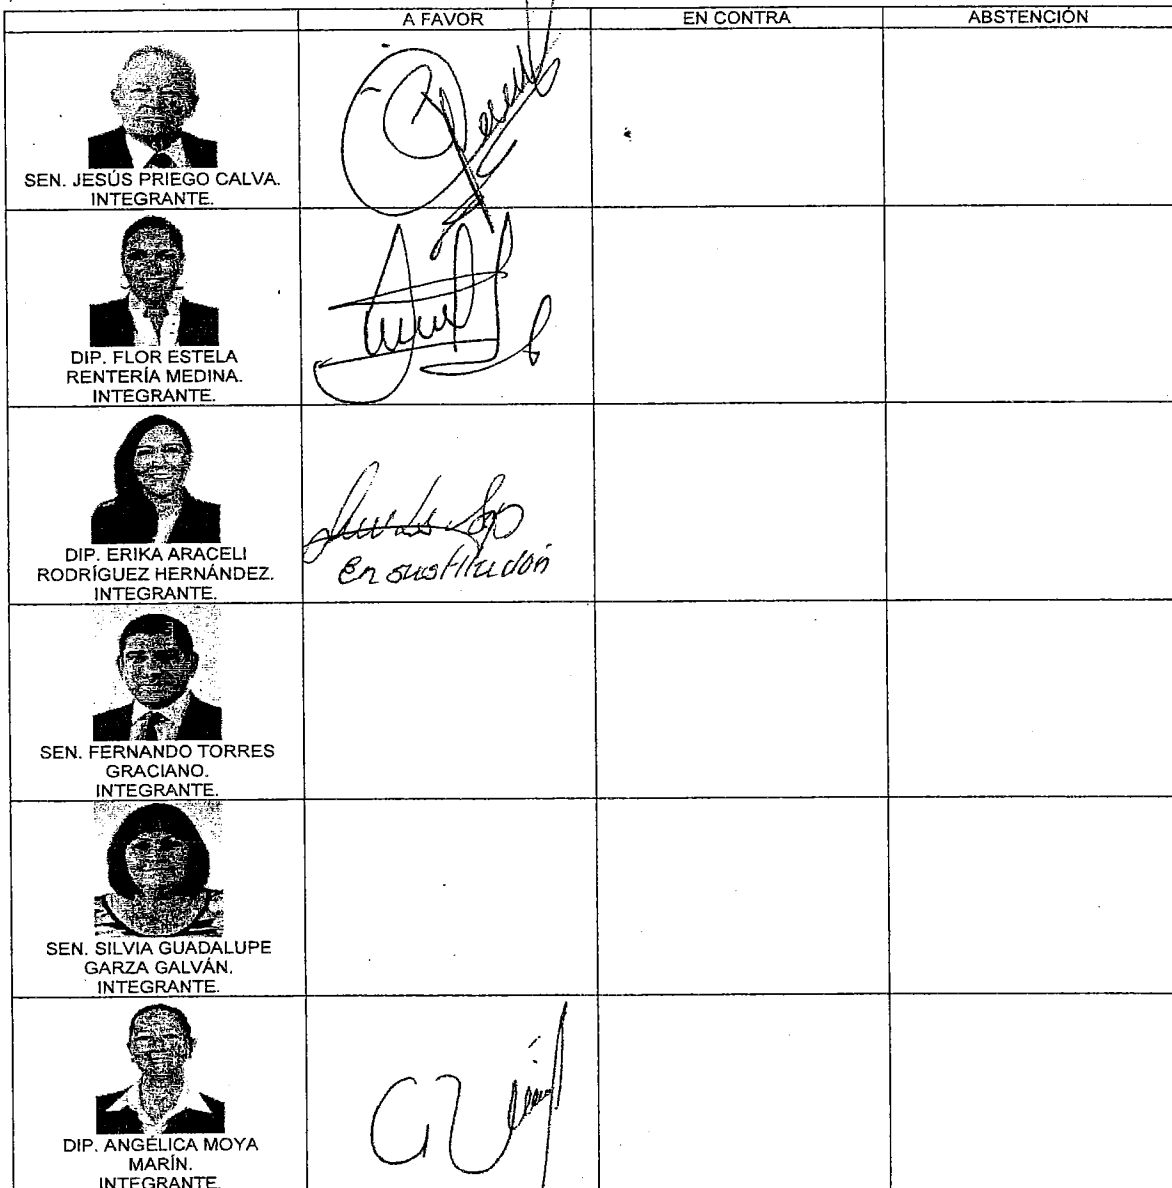 A FAVOR EN CONTRA ABSTENCIÓN
SEN. JESÚS PRIEGO CALVA.
INTEGRANTE.
DIP. FLOR ESTELA
RENTERÍA MEDINA.
INTEGRANTE.
DIP. ERIKA ARACELI
RODRÍGUEZ HERNÁNDEZ.
INTEGRANTE.
en sustitución
SEN. FERNANDO TORRES
GRACIANO.
INTEGRANTE.
SEN. SILVIA GUADALUPE
GARZA GALVÁN.
INTEGRANTE.
DIP. ANGÉLICA MOYA
MARÍN.
INTEGRANTE.